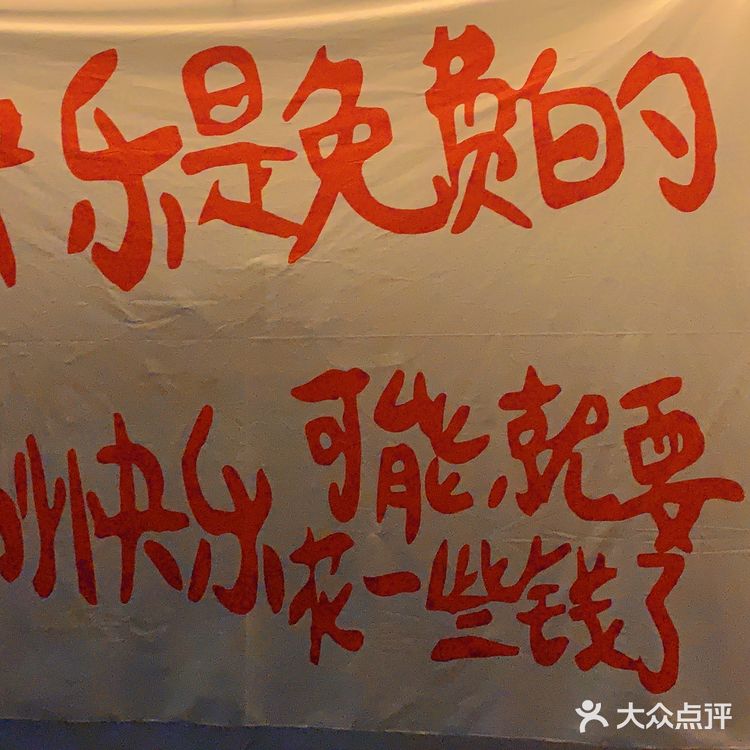 乐是免費的
可能,就要
快乐花一些钱了
大众点评